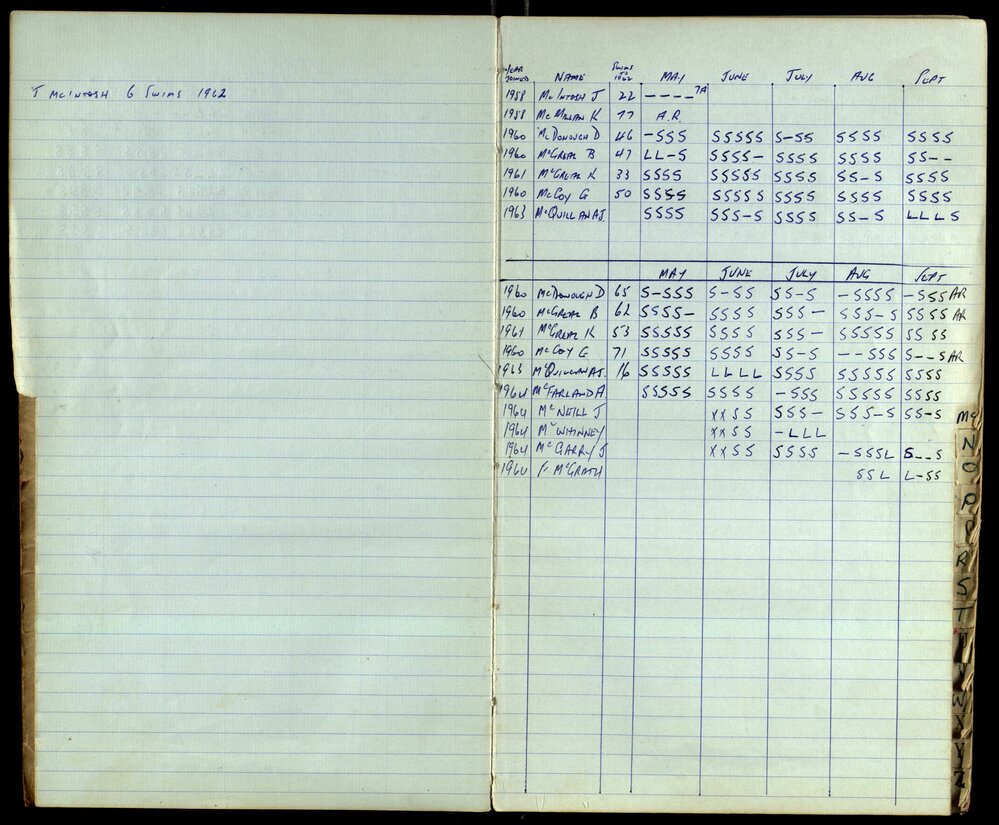 J McINTOSH 6 SWIMS 1962
YEAR JOINED NAME SWIMS TO 1962 MAY JUNE JULY AUG SEPT
1958 McINTOSH J 22 ---- 7A
1958 McMILLAN K 77 A.R.
1960 McDONOUGH D 46 -SSS SSSSS S-SS SSSS SSSS
1960 McGREAL B 47 LL-S SSSS- SSSS SSSS SS--
1961 McGREAL K 33 SSSS SSSSS SSSS SS-S SSSS
1960 McCOY G 50 SSSS SSSSS SSSS SSSS SSSS
1963 McQUILLAN A.J. SSSS SSS-S SSSS SS-S LLLS
MAY JUNE JULY AUG SEPT
1960 McDONOUGH D 65 S-SSS S-SS SS-S -SSSS -SSS AR
1960 McGREAL B 62 SSSS- SSSS SSS- SSS-S SSSS AR
1961 McGREAL K 53 SSSSS SSSS SSS- SSSSS SSSS
1960 McCOY G 71 SSSSS SSSS SS-S --SSS S--S AR
1963 McQUILLAN A.J. 16 SSSSS LLLL SSSS SSSSS SSSS
1964 McFARLAND A. SSSSS SSSS -SSS SSSSS SSSS
1964 McNEILL J XXSS SSS- SSS-S SS-S
1964 McWHINNEY XXSS -LLL
1964 McGARRY J XXSS SSSS -SSSL S--S
1964 F. McGRATH SSL L-SS
Mc
N
O
P
R
S
T
W
X
Y
Z